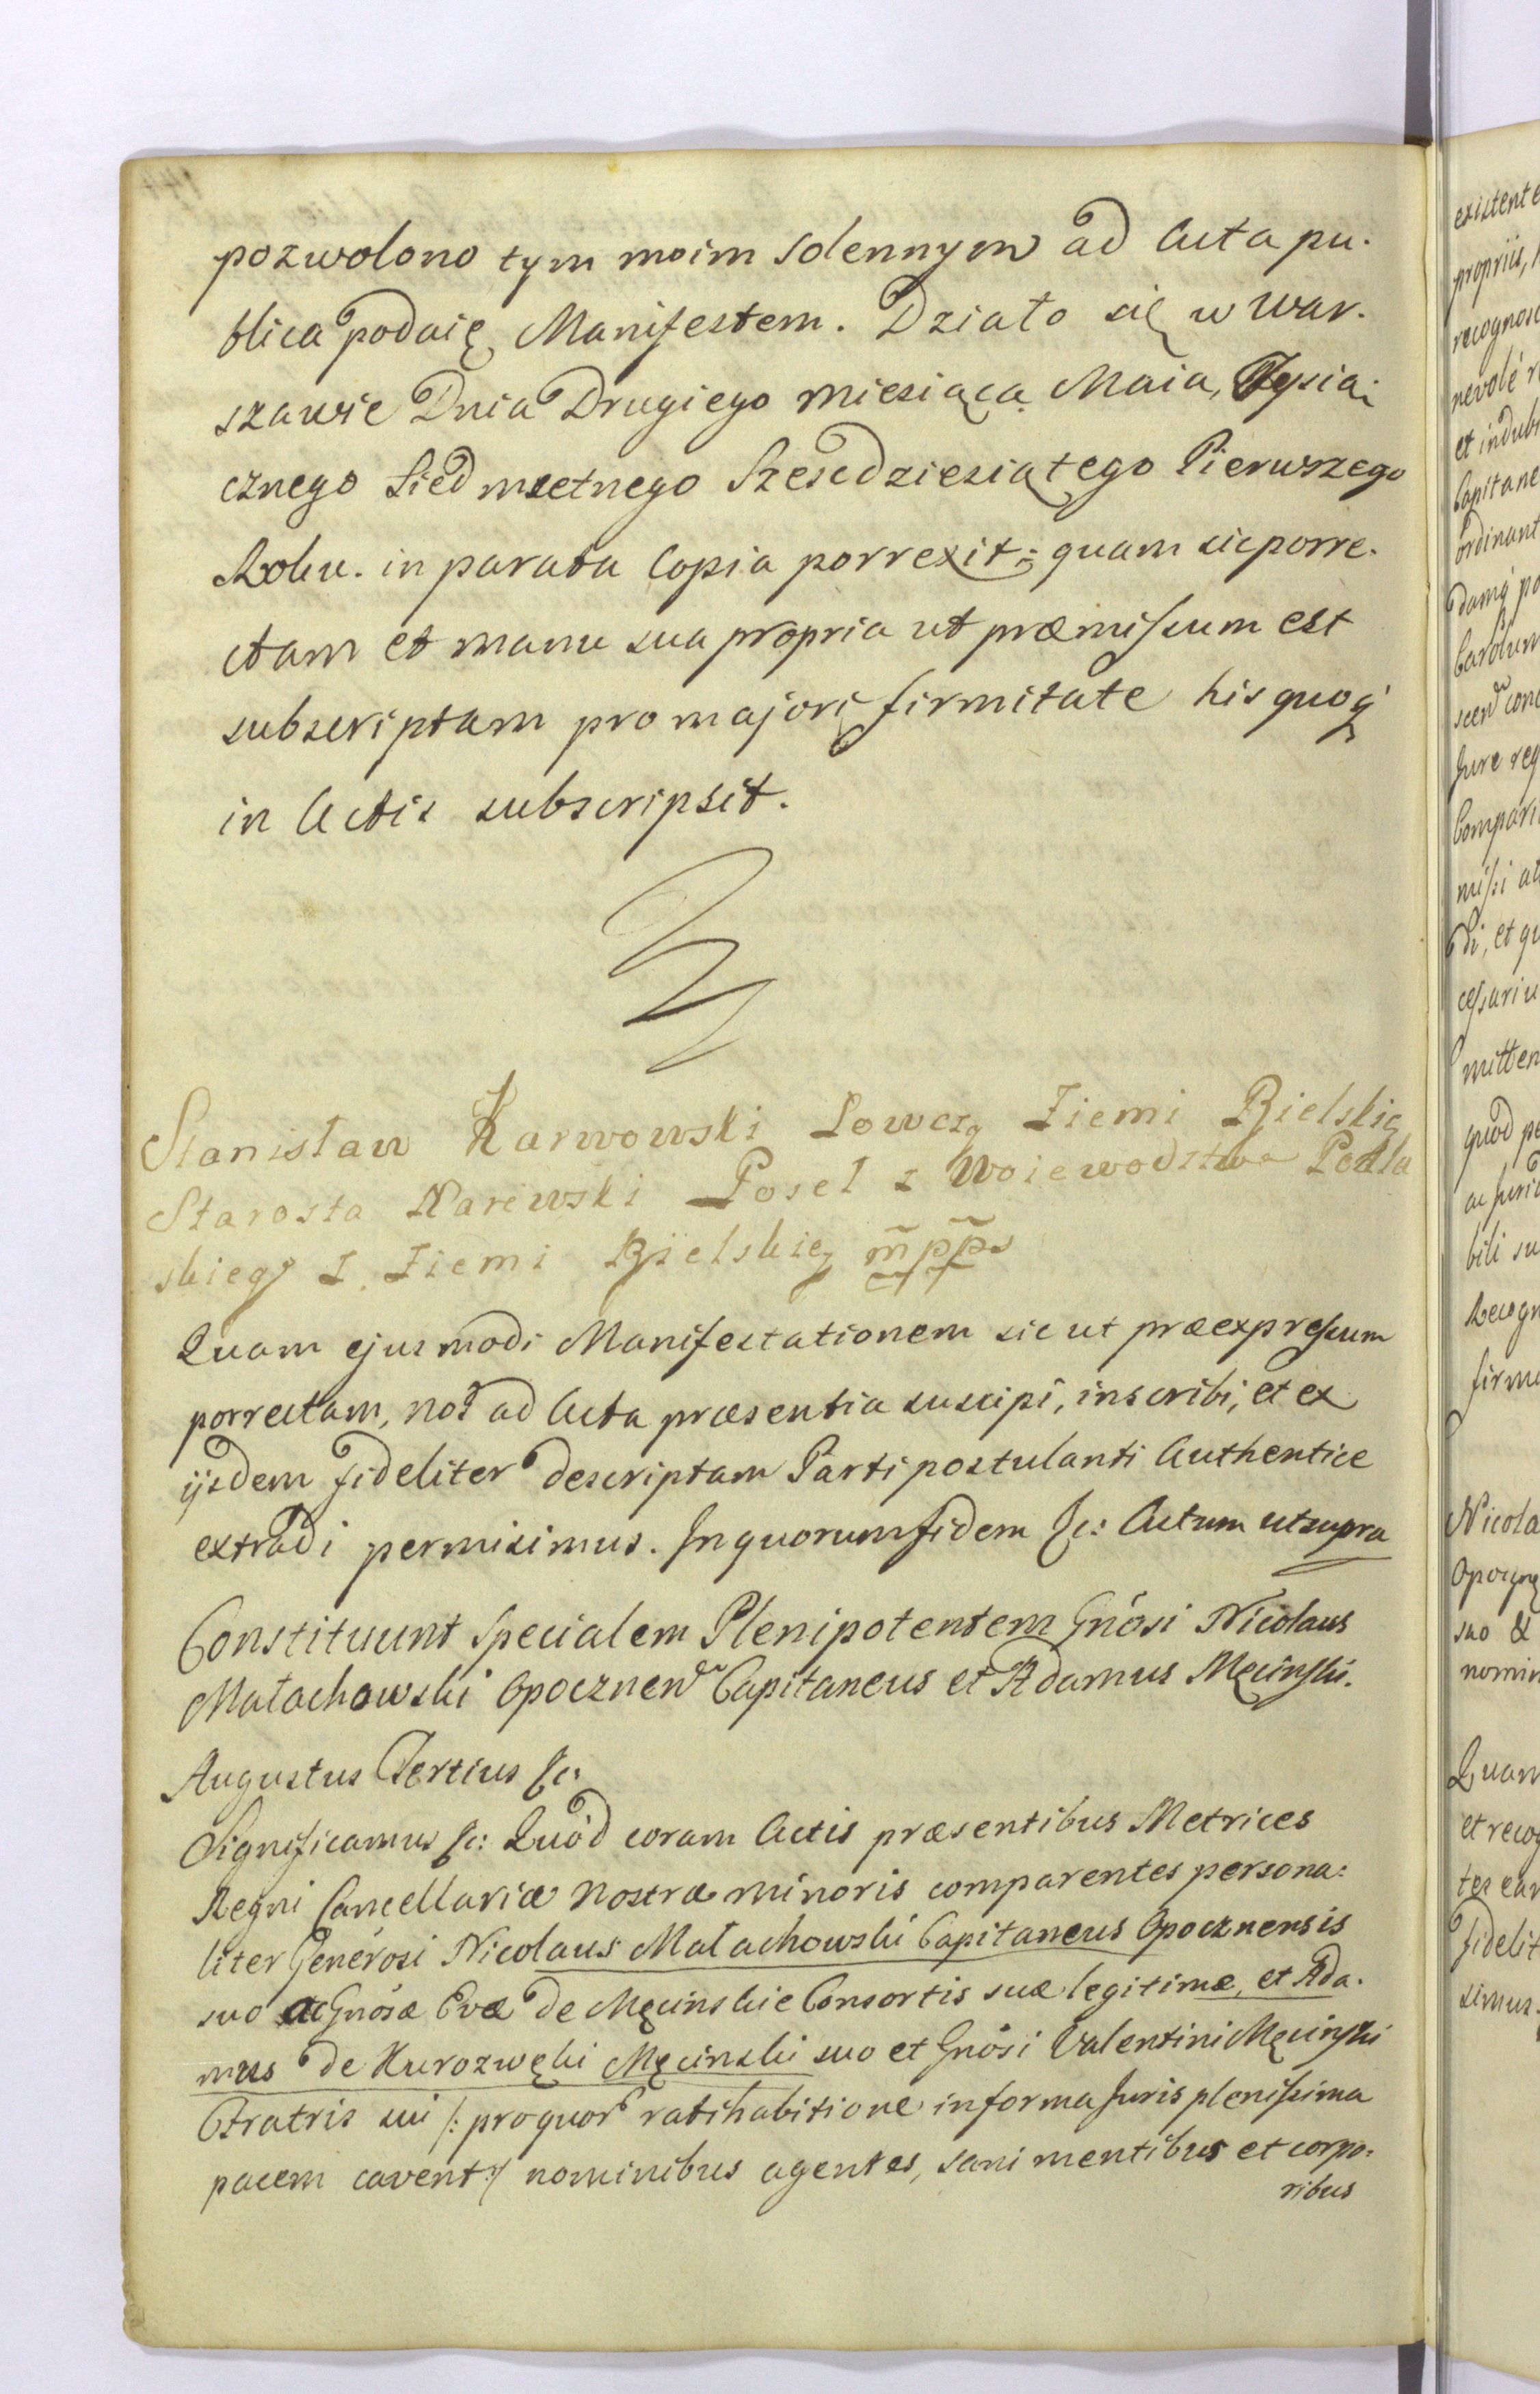 pozwolono tym moim solennym ad Acta pu-
blica podaię Manifestem. Działo się w War-
szawie Dnia Drugiego Miesiąca Maia, Tysią-
cznego Siedmsetnego Szescdziesiątego Pierwszego
Roku. in parata Copia porrexit; quam sic porre-
ctam et manu sua propria ut præmissum est
subscriptam pro majori firmitate his quoq
in Actis subscripsit.
Stanisław Karwowski Łowczy Ziemi Bielskiey
Starosta Narewski Poseł z Woiewodztwa Podla
skiego z Ziemi Bielskiey mpps
Quam ejusmodi Manifestationem sic ut præexpressum
porrectam, nos ad Acta præsentia suscipi, inscribi, et ex
ijsdem fideliter descriptam Parti postulanti Authentice
extradi permisimus. In quorum fidem &c: Actum ut supra
Constituunt Specialem Plenipotentem Gnosi Nicolaus
Małachowski Opocznen Capitaneus et Adamus Męcinski.
Augustus Tertius &c:
Significamus &c: Quòd coram Actis præsentibus Metrices
Regni Cancellariæ Nostræ Minoris comparentes persona:
liter Generosi Nicolaus Małachowski Capitaneus Opocznensis
suo ac Gnosæ Evæ de Męcinskie Consortis suæ legitimæ, et Ada-
mus de Kurozwęki Męcinski suo et Gnosi Valentini Męcinski
Fratris sui /: pro quor ratihabitione in forma Juris plenissima
pacem cavent :/ nominibus agentes, sani mentibus et corpo:
ribus
existente
propriis,
recogno
nevolé
et indub
Capitane
ordinant
damq
Carolum
Jure reg
Compari
missi
di, et qu
cessariu
mitten
quod pe
ac Juri
bili su
Recogn
firm
Nicola
suo &
nomin
Quam
et recog
tes
fidelit
simus.